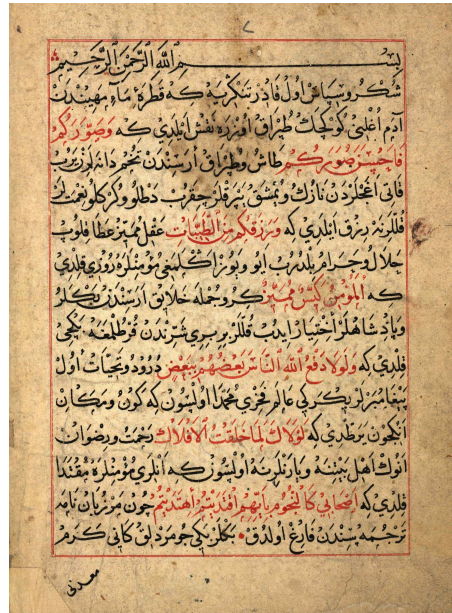 ٧
بسم الله الرحمن الرحيم
شكر و سپاس اول قادر تنكريه كه قطرهٔ ماء مهيندن
آدم اغلني كوكجك طپراق اوزره نقش ايلدي كه وصوركم
فاحسن صوركم طاش و طپراق ارسندن تخم دانه لرن يرب
اغجلردن نازك و يمشق يپرقلر چقرب دطلو و كركلو نعمتلر
قللرينه رزق ايلدي كه ورزقكم من الطيبات عقل مميز عطا قلوب
حلال و حرام بلدرب ايو و يوز اكلمغي مؤمنلره روزي قلدي
كه المؤمن كيس مميز كرو جمله خلايق ارسندن بكلر
و پادشاهلر اختيار ايدب قللر بربري شرندن قورطلمغه بكجي
قلدي كه ولولا دفع الله الناس بعضهم ببعض درود و تحيات اول
پيغامبرلر بكركي عالم فخري محمدا اولسون كه كون و مكان
انكجون يرطدي كه لولاك لما خلقت الافلاك رحمت و رضوان
انوك اهل بيتنه و يارنلرينه اولسون كه انلري مؤمنلره مقتدا
قلدي كه اصحابي كالنجوم بايهم اقتديتم اهتديتم چون مرزبان نامه
ترجمه سندن فارغ اولدق بكلربكي جومردلق كاني كرم
معدني